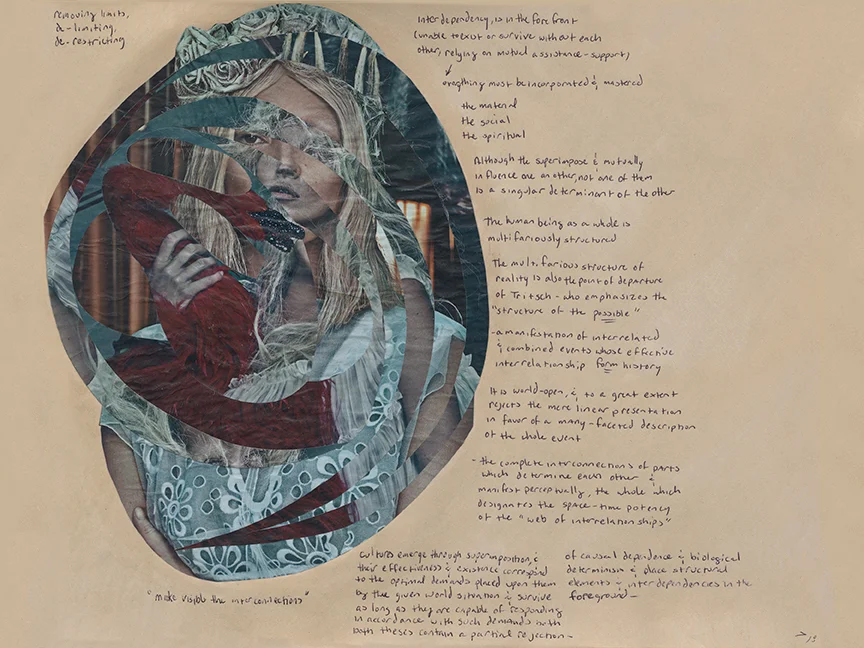 removing limits,
de-limiting,
de-restricting
interdependency, is in the forefront
(unable to exist or survive without each
other, relying on mutual assistance-support)
everything must be incorporated & mastered
the material
the social
the spiritual
Although the superimpose & mutually
influence one another, not one of them
is a singular determinant of the other
The human being as a whole is
multifariously structured
The multifarious structure of
reality is also the point of departure
of Tritsch - who emphasizes the
"structure of the possible"
-a manifestation of interrelated
& combined events whose effective
interrelationship form history
It is world-open, & to a great extent
rejects the mere linear presentation
in favor of a many-faceted description
of the whole event
- the complete interconnections of parts
which determine each other &
manifest perceptually, the whole which
designates the space-time potency
of the "web of interrelationships"
cultures emerge through superimposition, &
their effectiveness & existence correspond
to the optimal demands placed upon them
by the given world situation & survive
as long as they are capable of responding
in accordance with such demands both
both theses contain a partial rejection -
of causal dependence & biological
determinism & place structural
elements & interdependencies in the
foreground -
"make visible the interconnections"